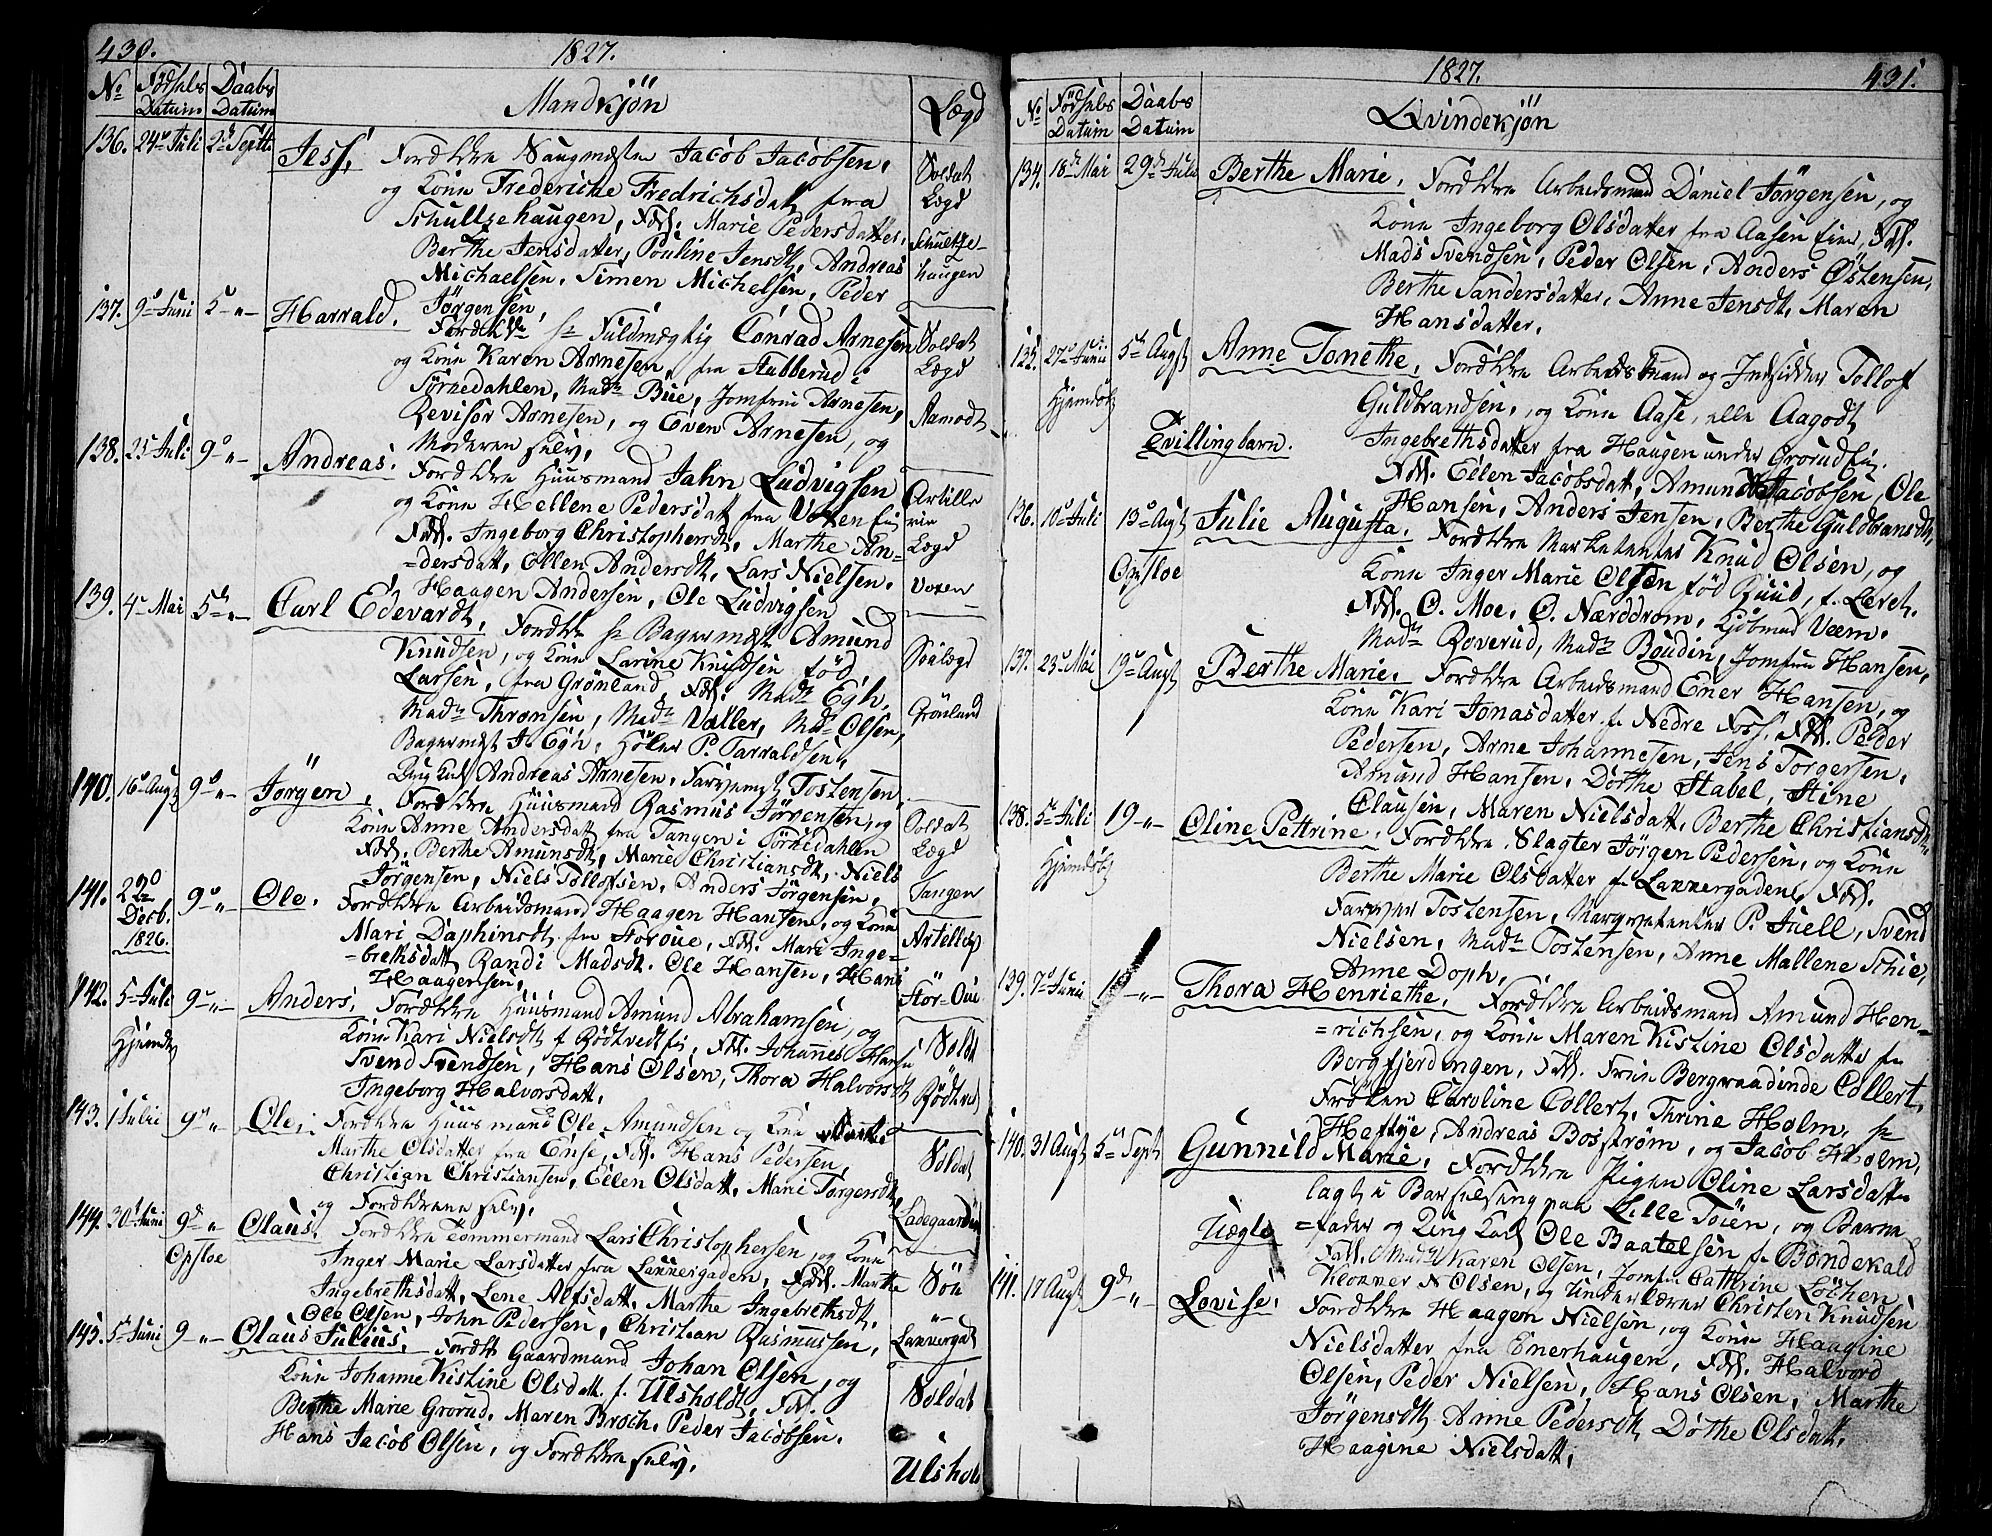 430.
1827.
No Fødsels Datum Daabs Datum
Mandkjön
Lægd
136. 24de Juli 2den Septb.
Jess, Forældre Saugmester Jacob Jacobsen,
og Kone Frederiche Fredrichsdatt. fra
Schultzehaugen, Fdd. Marie Pedersdatter,
Berthe Jensdatter, Pouline Jensdt, Andreas
Michaelsen, Simen Michelsen, Peder
Jörgensen,
Soldat
Lægd
Schultze-
haugen
137. 9de Juni 5te "
Harrald. Forældre Sr Fuldmægtig Conrad Arnesen
og Kone Karen Arnesen, fra Stubberud i
Sörkedahlen, Madm Bue, Jomfrue Arnesen,
Revisor Arnesen, og Even Arnesen, og
Moderen selv,
Soldat
Lægd
Aamodt
138. 25 Juli 9de "
Andreas. Forældre Huusmand Jahn Ludvigsen
og Kone Hellene Pedersdatt fra Voxen Eie
Fdd. Ingeborg Christophersdt, Marthe An=
=dersdatt, Ellen Andersdt, Lars Nielsen,
Haagen Andersen, Ole Ludvigsen
Artille
rie
Lægd
Voxen
139. 4de Mai 5te "
Carl Edevardt, Forældre Sr Bagermester Amund
Knudsen, og Kone Larine Knudsen född
Larsen, fra Grönland, Fdd. Madm Egh,
Madm Thronsen, Madm Valler, Md. Olsen,
Bagermest J. Egh, Höker P. Tarraldsen,
Ung Karl Andreas Arnesen, Farvemest Tostensen,
Söelægd
Grönland
140. 16de Augt 9de "
Jörgen, Forældre Huusmand Rasmus Jörgensen, og
Kone Anne Andersdatt fra Tangen i Sörkedahlen
Fdd. Berthe Amunsdt, Marie Christiansdt, Niels
Jörgensen, Niels Tollofsen, Anders Jörgensen,
Soldat
Lægd
Tangen
141. 22de Decb. 1826. 9de "
Ole. Forældre Arbeidsmand Haagen Hansen, og Kone
Mari Daphinsdt fra Storöue, Fdd. Mari Inge=
=brethsdatt, Randi Madsdt. Ole Hansen, Hans
Haagensen,
Artellet
Stor-Öue
142. 5te Juli 9de "
Hjemdöbt
Anders, Forældre Huusmand Amund Abrahamsen, og
Kone Kari Nielsdt f Rödtvedt Ei, Fdd. Johannes Hansen
Svend Svendsen, Hans Olsen, Thora Halvorsdt
Ingeborg Halvorsdatt,
Soldt
Rödtvedt
143. 1 Julii 9de "
Ole, Forældre Huusmand Ole Amundsen og Kone
Marthe Olsdatter fra Ense, Fdd. Hans Pedersen,
Christian Christiansen, Ellen Olsdatt, Mari Torgersdt
og Forældrene selv,
Soldat
Ladegaardsöen
144. 30te Juni 9de "
Opsloe
Claus, Forældre Tömmermand Lars Christophersen, og Kone
Inger Marie Larsdatter fra Lannergaden, Fdd. Marthe
Ingebrethsdatt, Lene Alfsdatt, Marthe Ingebrethsdt,
Ole Olsen, John Pedersen, Christian Rasmussen,
Söe
"
Lannergat
145. 5te Juni 9 "
Claus Julius, Forældr Gaardmand Johan Olsen, og
Kone Johanne Kistine Olsdatt f. Ulsholdt, Fdd.
Berthe Marie Grorud, Maren Broch, Peder Jacobsen,
Hans Jacob Olsen, og Forældre selv,
Soldat
i
Ulshol
1827.
431.
No Födsels Datum Daabs Datum
Qvindekjön
134. 18de Mai 29de Juli
Berthe Marie, Forældre Arbeidsmand Daniel Jörgensen, og
Kone Ingeborg Olsdatter fra Aasen Eie, Fdd.
Mads Svendsen, Peder Olsen, Anders Östensen,
Berthe Sandersdatter, Anne Jensdt, Maren
Hansdatter,
135. 27de Junii 5te Augt
Hjemdöbt
Anne Tonethe, Forældre Arbeidsmand og Indsidder Tollof
Guldbrandsen, og Kone Aase, eller Aagodt
Tvillingbarn. Ingebrethsdatter fra Haugen under Grorud Eie.
Fdd. Ellen Jacobsdatt, Amund Jacobsen, Ole
Hansen, Anders Jensen, Berthe Guldbransdt,
136. 10de Juli 13de Augt
Opsloe
Julie Augusta, Forældre Marketenter Knud Olsen, og
Kone Inger Marie Olsen föd Ruud, f. Leret.
Fdd. O. Moe, O. Nærddrom, Kjöbmand Veem,
Madm Roverud, Madm Boudin, Jomfrue Hansen,
137. 23de Mai 19de Augt
Berthe Marie, Forældre Arbeidsmand Ener Hansen, og
Kone Kari Jonasdatter f. Nedre Foss. Fdd. Peder
Pedersen, Arne Johannesen, Jens Torgersen,
Amund Hansen, Dorthe Stabel, Stine
Clausen, Maren Nielsdatt, Berthe Christiansdt,
138. 5te Juli 19 "
Hjemdöbt
Oline Pettrine, Forældre Slagter Jörgen Pedersen, og Kone
Berthe Marie Olsdatter fra Lannergaden, Fdd.
Farver Tostensen, Margvetenter P. Juell, Svend
Nielsen, Madm Tostensen, Anne Mallene Schie,
Anne Doph,
139. 7de Junii 19 "
Thora Henriethe, Forældre Arbeidsmand Amund Hen=
=richsen, og Kone Maren Kistine Olsdatter fra
Bergfjerdingen, Fdd. Frue Bergraadinde Collert,
Fröken Caroline Collert, Thrine Holm, Sr
Heftye, Andreas Boström, og Jacob Holm,
140. 31 Augt 5te Sept
Gunnild Marie, Forældre Pigen Oline Larsdatter
lagt i Barselseng paa Lille Töien, og Barne
Uægte =fader og Ung Karl Ole Baatelsen f. Bondekald
Fdd. Madm Karen Olsen, Jomfru Cathrine Löchen,
Klokker N Olsen, og Underlærer Christen Knudsen
141. 17 Augt 9de "
Lovise, Forældre Haagen Nielsen, og Kone Haagine
Nielsdatter fra Enerhaugen, Fdd. Halvord
Olsen, Peder Nielsen, Hans Olsen, Marthe
Jörgensdt, Anne Pedersdt, Dorthe Olsdatt,
Haagine Nielsdatt,